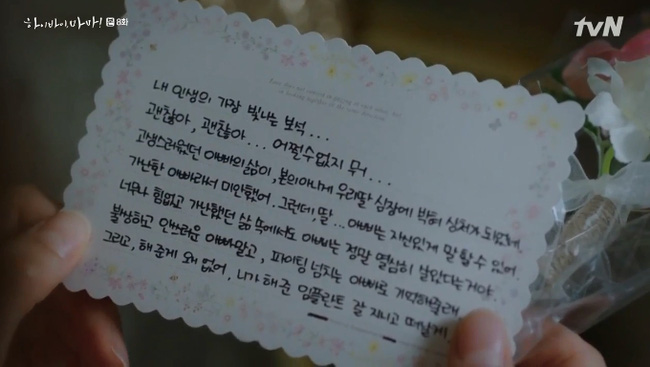 하이바이,마마! 8화
tvN
내 인생의 가장 빛나는 보석...
괜찮아, 괜찮아... 어쩔수없지 뭐...
고생스러웠던 아빠의삶이, 본의아니게 우리딸 심장에 박혀 상처가
가난한 아빠라서 미안했어. 그런데, 딸... 아빠는 자신있게 말할수 있어
너무나 힘없고 가난했던 삶 속에서도 아빠는 정말 열심히 살았다는거야..
불쌍하고 안쓰러운 아빠말고, 파이팅 넘치는 아빠로 기억해줄래
그리고, 해준게 왜 없어, 니가 해준 임플란트 잘 지니고 떠날게.